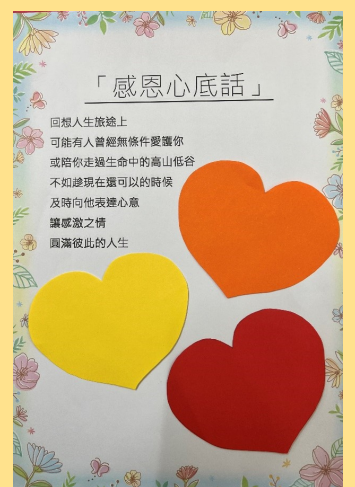 「感恩心底話」
回想人生旅途上
可能有人曾經無條件愛護你
或陪你走過生命中的高山低谷
不如趁現在還可以的時候
及時向他表達心意
讓感激之情
圓滿彼此的人生